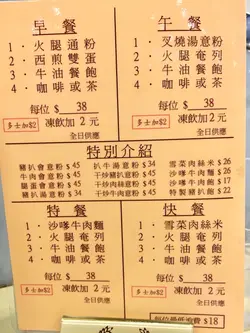 早餐
1．火腿通粉
2．西煎雙蛋
3．牛油餐飽
4．咖啡或茶
每位 $ 38
多士加$2 凍飲加 2 元
全日供應
午餐
1．叉燒湯意粉
2．火腿奄列
3．牛油餐飽
4．咖啡或茶
每位 $ 38
多士加$2 凍飲加 2 元
全日供應
特別介紹
豬扒會意粉 $45
牛肉會意粉 $45
腿蛋會意粉 $45
豬扒湯意粉 $34
扒牛湯意粉 $34
干炒豬扒意粉 $45
干炒肉絲意粉 $45
干炒牛肉意粉 $45
雪菜肉絲米 $26
沙嗲牛肉麵 $26
沙嗲牛肉飽 $18
特製豬扒飽 $22
特餐
1．沙嗲牛肉麵
2．火腿奄列
3．牛油餐飽
4．咖啡或茶
每位 $ 38
多士加$2 凍飲加 2 元
全日供應
快餐
1．雪菜肉絲米
2．火腿奄列
3．牛油餐飽
4．咖啡或茶
每位 $ 38
多士加$2 凍飲加 2 元
全日供應
每位最低消費 $18